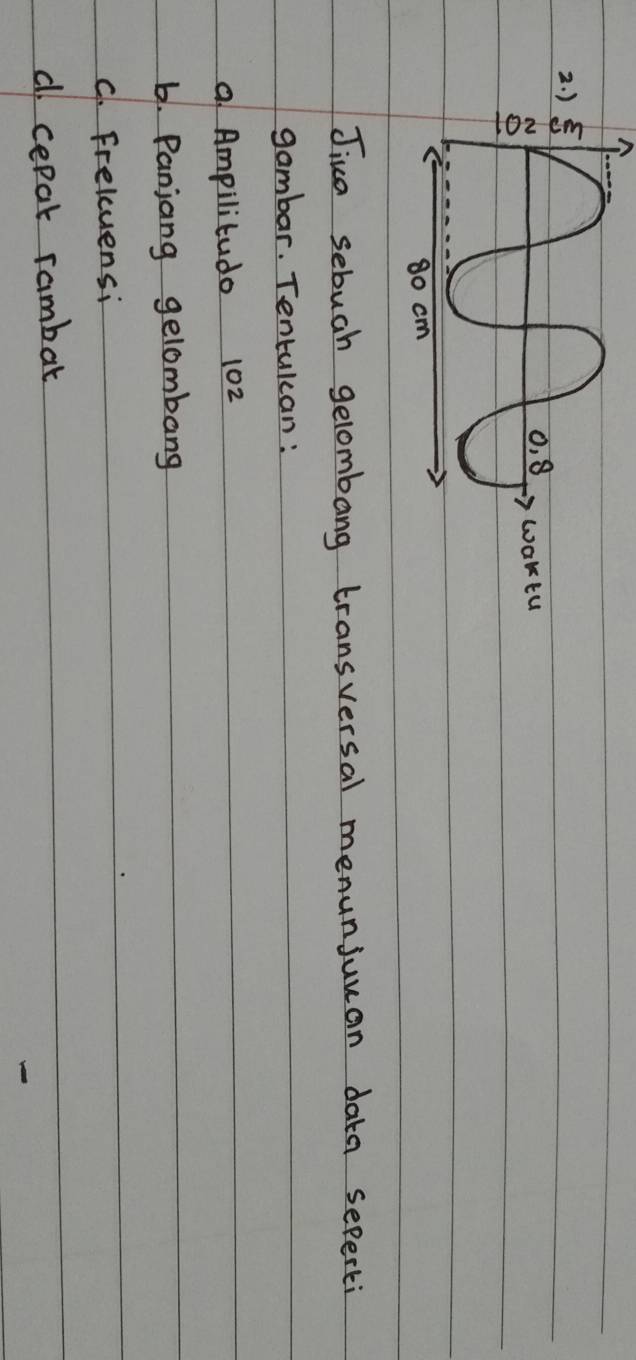 2.)
102 cm
0,8
waktu
80 cm
Jika sebuah gelombang transversal menunjukan data seperti
gambar. Tentukan:
a. Ampilitudo 102
b. Panjang gelombang
c. Frekuensi
d. cepat rambat